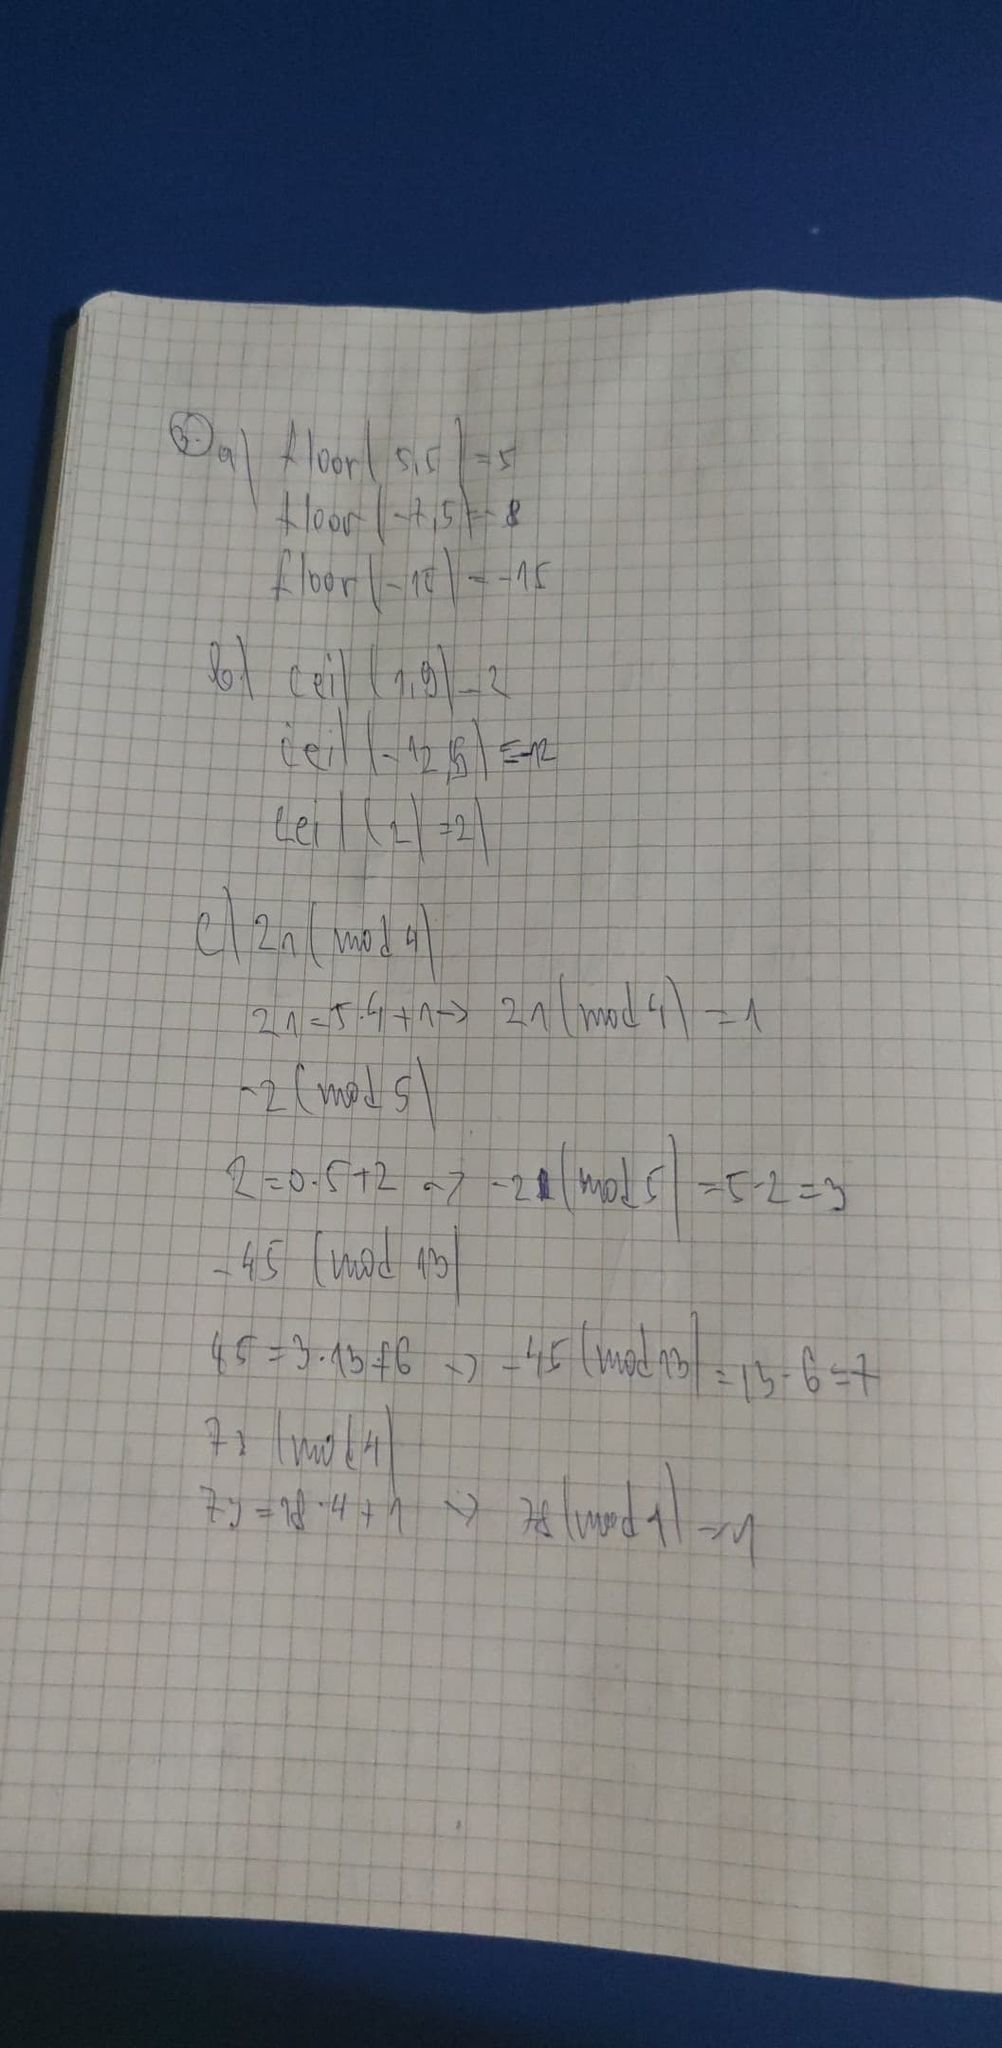 3. a) floor(5,5)=5
floor(-7,5)=-8
floor(-15)=-15
b) ceil(1,9)=2
ceil(-12,5)=-12
ceil(2)=2)
c) 21(mod 4)
21=5·4+1→ 21(mod 4)=1
-2(mod 5)
2=0·5+2 → -2(mod 5)=5-2=3
-45 (mod 13)
45=3·13+6 → -45(mod 13)=13-6=7
73 (mod 4)
73=18·4+1 →